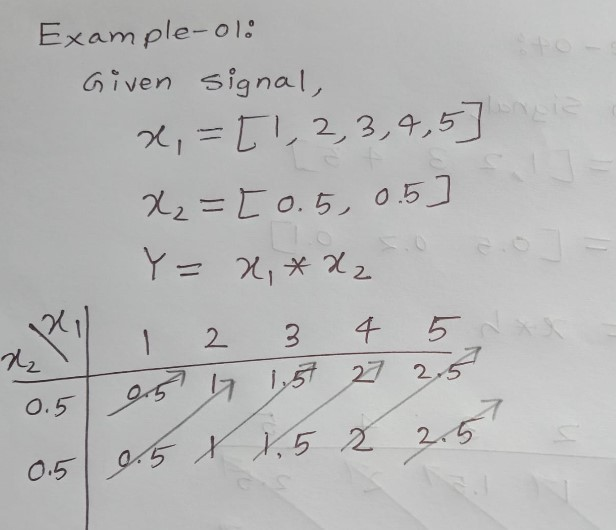 Example-01:
Given signal,
x₁ = [1, 2, 3, 4, 5]
x₂ = [0.5, 0.5]
Y = x₁ * x₂
x₁ 1 2 3 4 5
x₂
0.5 0.5 1 1.5 2 2.5
0.5 0.5 1 1.5 2 2.5